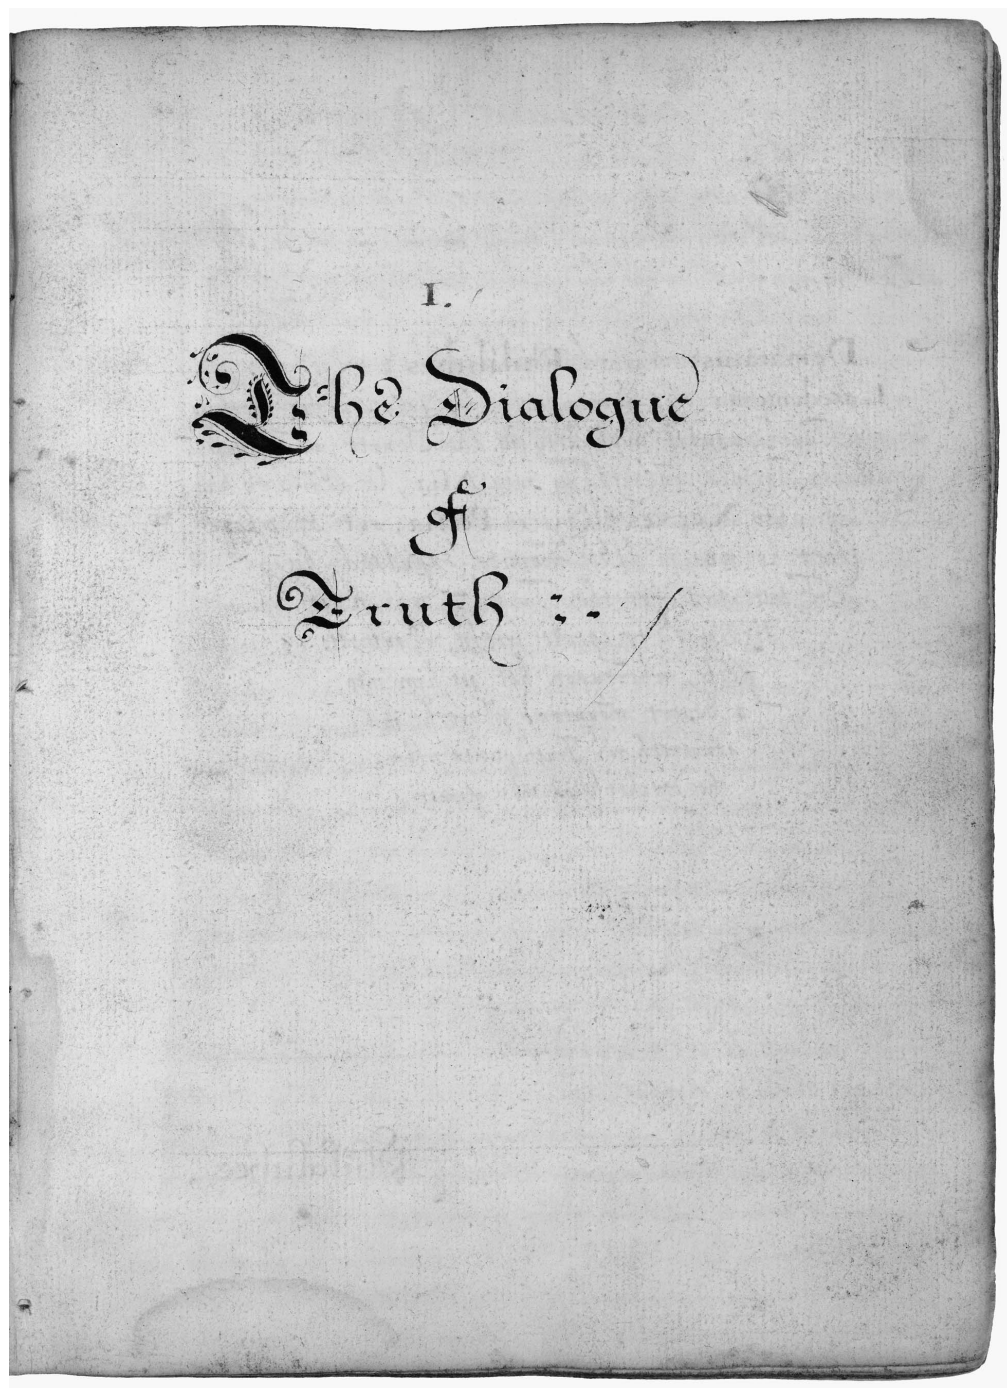 I.
The Dialogue
of
Truth :..